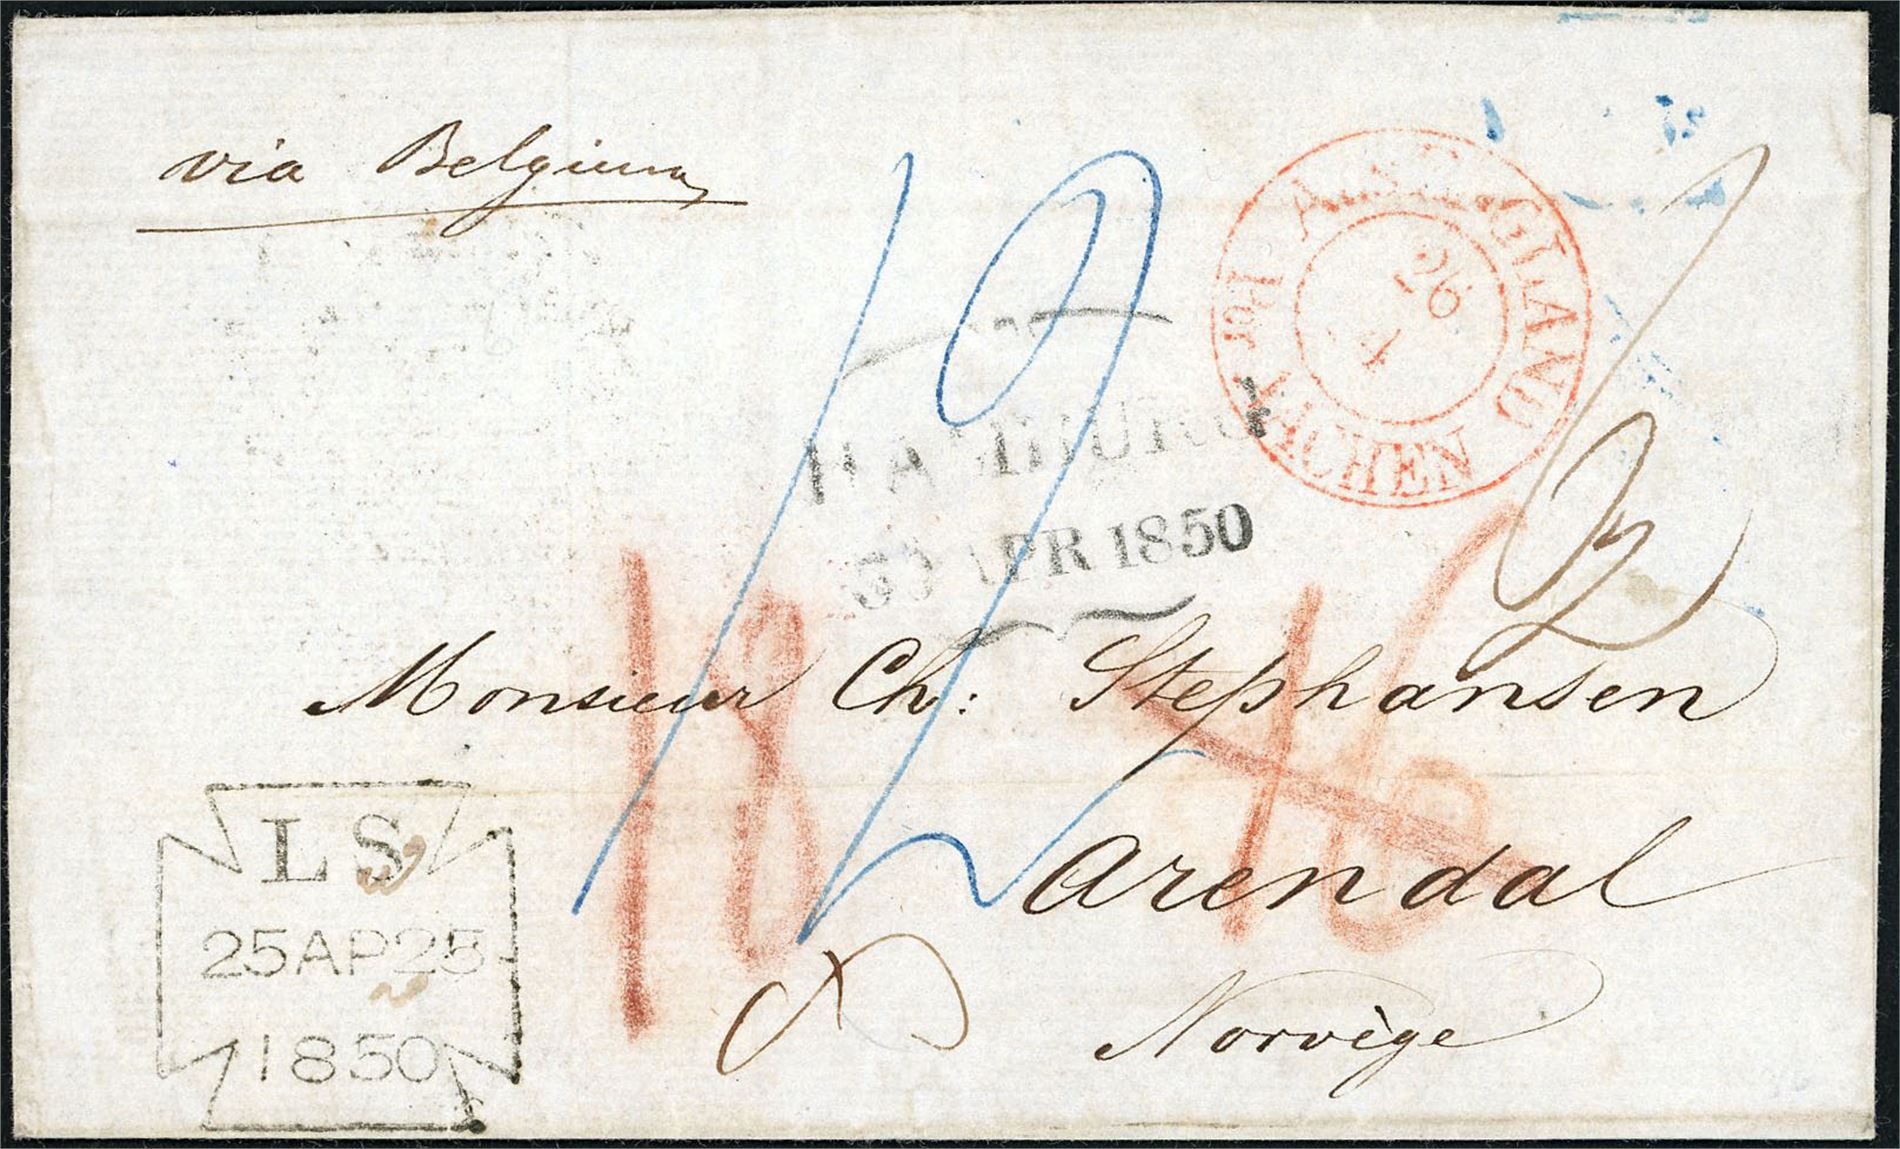 via Belgium
AUS ENGLAND
Per AACHEN
26
4
HAMBURG
30 APR 1850
18
16
Monsieur Ch: Stephansen
Arendal
Norvège
L S
25AP25
1850